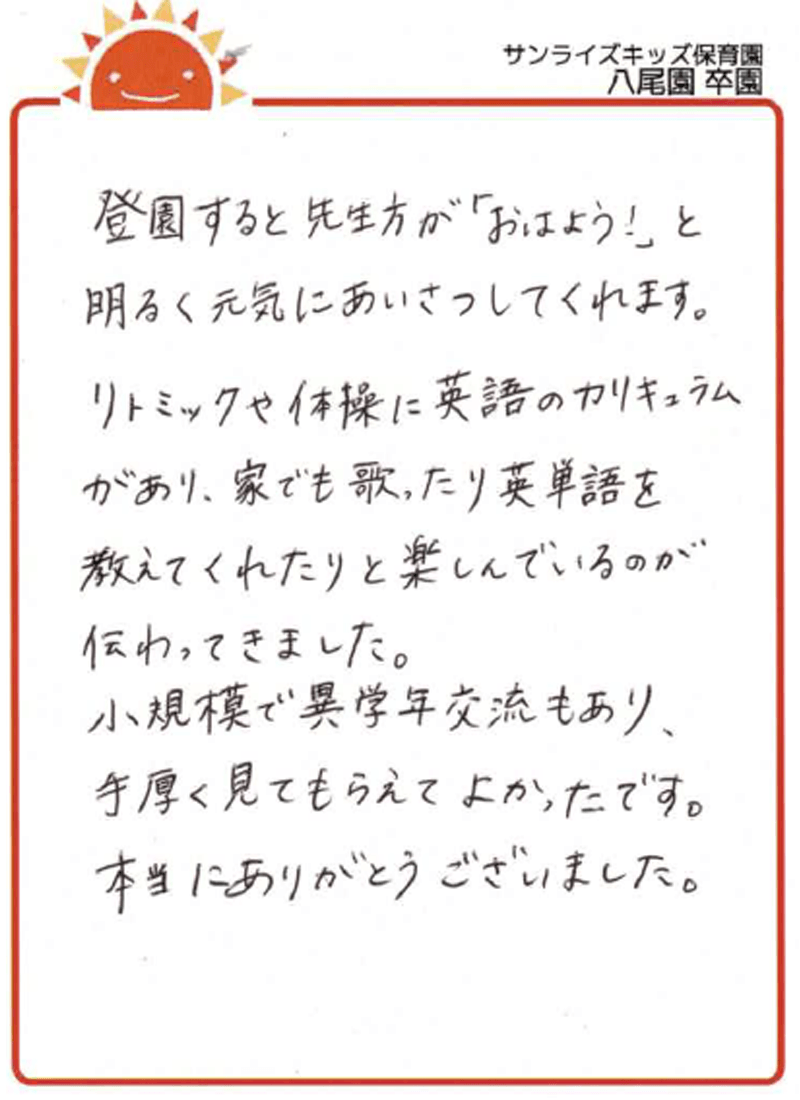 サンライズキッズ保育園
八尾園 卒園
登園すると先生方が「おはよう!」と
明るく元気にあいさつしてくれます。
リトミックや体操に英語のカリキュラム
があり、家でも歌ったり英単語を
教えてくれたりと楽しんでいるのが
伝わってきました。
小規模で異学年交流もあり、
手厚く見てもらえてよかったです。
本当にありがとうございました。